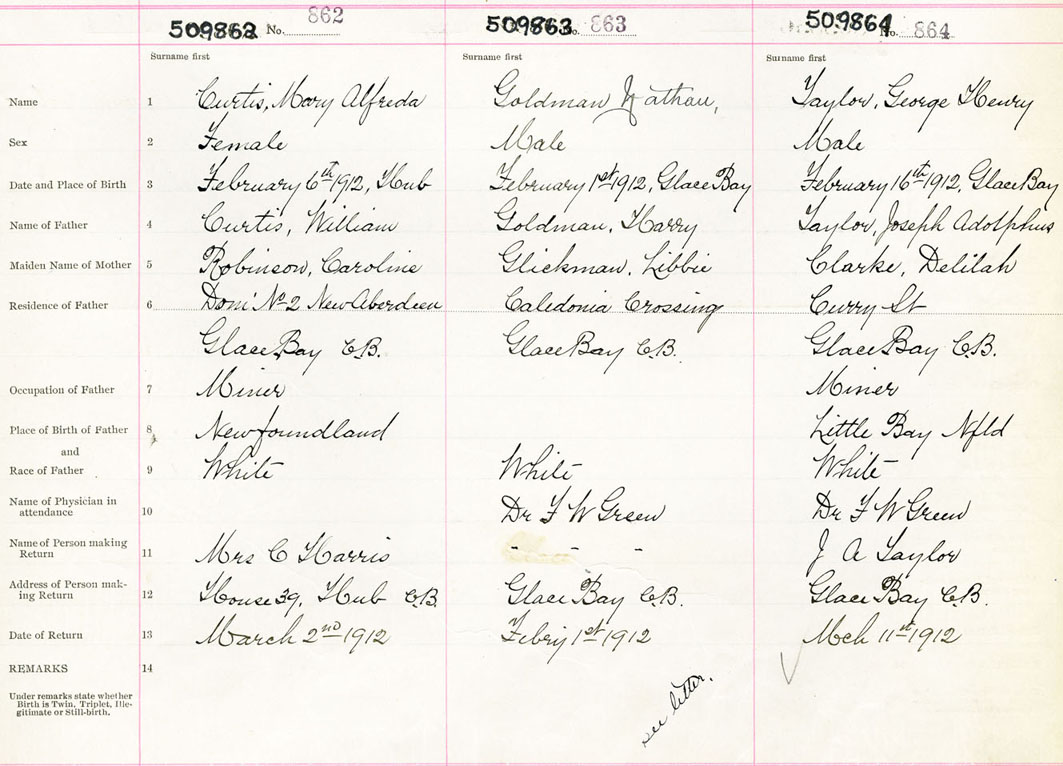 509862 No. 862 509863 No. 863 509864 No. 864
Surname first Surname first Surname first
Name 1 Curtis, Mary Alfreda Goldman Nathan, Taylor, George Henry
Sex 2 Female Male Male
Date and Place of Birth 3 February 6th 1912, Hub February 1st 1912, Glace Bay February 16th 1912, Glace Bay
Name of Father 4 Curtis, William Goldman, Harry Taylor, Joseph Adolphus
Maiden Name of Mother 5 Robinson, Caroline Glickman, Libbie Clarke, Delilah
Residence of Father 6 Dom' No 2 New Aberdeen Caledonia Crossing Curry St
Glace Bay C.B. Glace Bay C.B. Glace Bay C.B.
Occupation of Father 7 Miner Miner
Place of Birth of Father 8 Newfoundland Little Bay Nfld
and
Race of Father 9 White White White
Name of Physician in
attendance 10 Dr F W Green Dr F W Green
Name of Person making
Return 11 Mrs C Harris - - - J A Taylor
Address of Person mak-
ing Return 12 House 39, Hub C.B. Glace Bay C.B. Glace Bay C.B.
Date of Return 13 March 2nd 1912 Febry 1st 1912 Mch 11st 1912
REMARKS 14
Under remarks state whether
Birth is Twin, Triplet, Ille-
gitimate or Still-birth.
see letter.